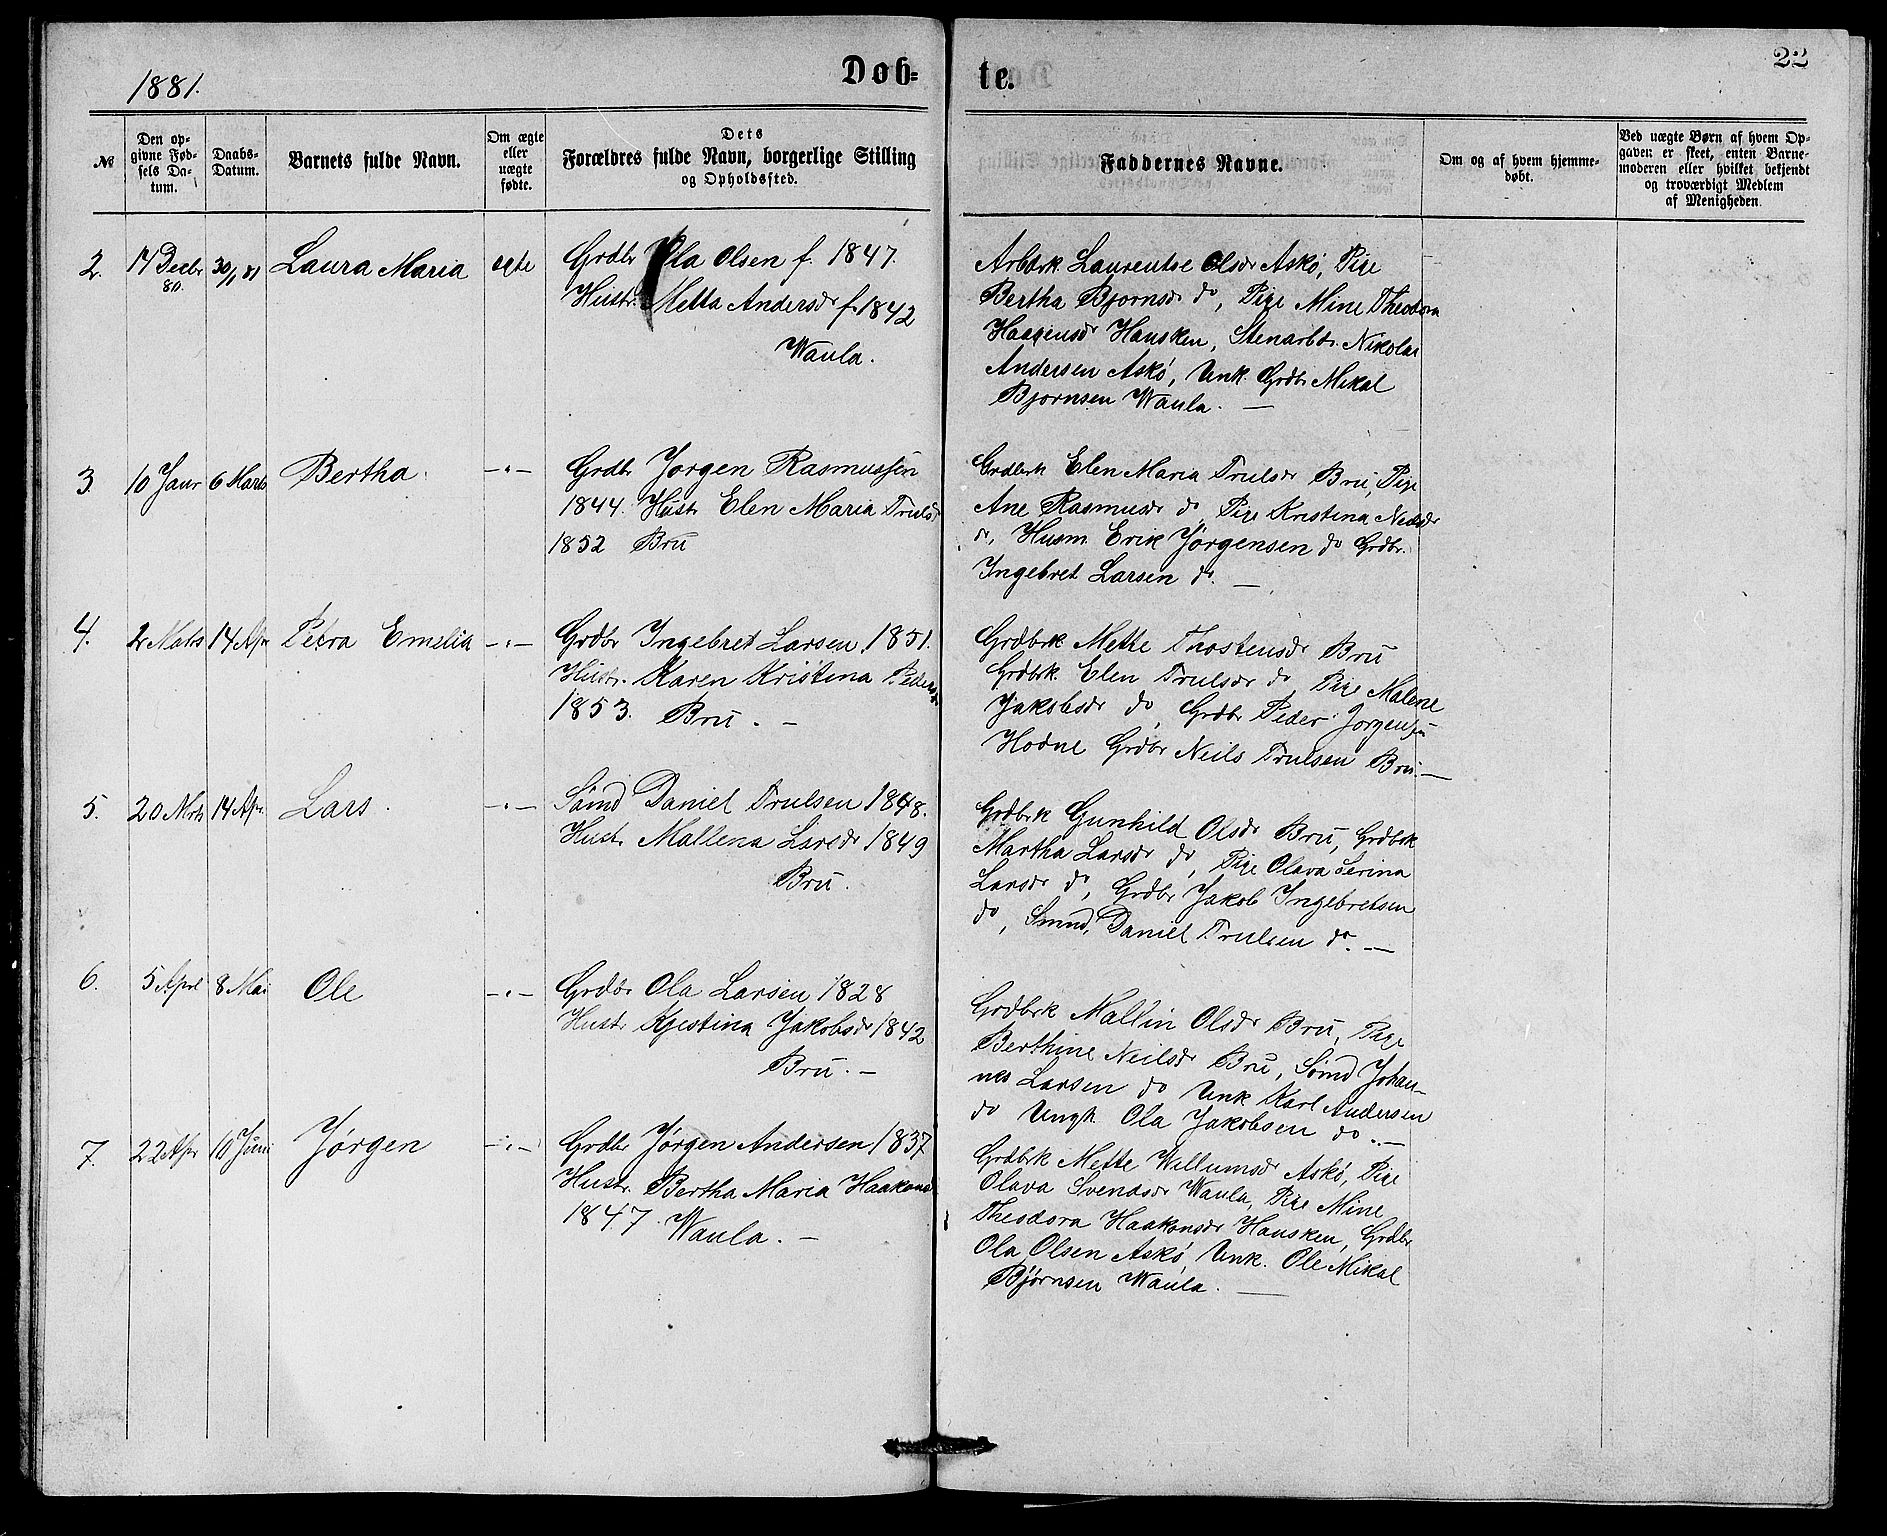 1881.
Døb=
te.
22
№
Den opgivne Fødsels Datum.
Daabs-Datum.
Barnets fulde Navn.
Om ægte eller uægte fødte.
Dets Forældres fulde Navn, borgerlige Stilling og Opholdssted.
Faddernes Navne.
Om og af hvem hjemmedøbt.
Ved uægte Børn af hvem Opgaven er skeet, enten Barnemoderen eller hvilket bekjendt og troværdigt Medlem af Menigheden.
2. 14 Decbr 80. 30/1 81 Laura Maria egte
Grdbr Ola Olsen f. 1847.
Hustr. Metta Andersdr f. 1842
Waula.
Arbdrk. Laurentse Olsdr Askø, Pige
Bertha Bjornsdr do, Pige Mine Theodora
Haagensdr Hausken, Stenarbdr. Nikolai
Andersen Askø, Unk. Grdbr Mikal
Bjornsen Waula. —
3. 10 Janr 6 Marts Bertha. —"—
Grdbr Jørgen Rasmussen
1844. Hustr Elen Maria Trulsdr
1852 Bru
Grdbrk Elen Maria Trulsdr Bru, Pige
Ane Rasmusdr do Pige Kristina Neilsdr
do, Husm. Erik Jørgensen do Grdbr.
Ingebret Larsen do. —
4. 2 Marts 14 Apr Petra Emelia —"—
Grdbr Ingebret Larsen 1851.
Hustr. Karen Kristina Pedersdr
1853. Bru. —
Grdbrk. Mette Thostensdr Bru
Grdbrk. Elen Trulsdr do Pige Malene
Jakobsdr do, Grdbr Peder Jorgensen
Hodne Grdbr Neils Trulsen Bru. —
5. 20 Mrts 14 Apr. Lars. —"—
Sømd Daniel Trulsen 1848.
Hustr Mallena Larsdr 1849
Bru.
Grdbrk Gunhild Olsdr Bru, Grdbrk
Martha Larsdr do, Pige Olava Serina
Larsdr do, Grdbr Jakob Ingebretsen
do, Smnd. Daniel Trulsen do. —
6. 5 Aprl 8 Mai Ole —"—
Grdbr Ola Larsen 1828
Hustr Kjestina Jakobsdr 1842
Bru. —
Grdbrk Mallin Olsdr Bru, Pige
Berthine Neilsdr Bru, Sømd Johan-
nes Larsen do Unk Karl Andersen
do Ungk. Ola Jakobsen do. —
7. 22 Apr 10 Juni Jørgen —"—
Grdbr Jørgen Andersen 1837
Hustr. Bertha Maria Haakonsd
1847. Waula. —
Grdbrk Mette Willumsdr Askø, Pige
Olava Svendsdr Waula, Pige Mine
Theodora Haakonsdr Hausken, Grdbr
Ola Olsen Askø, Unk. Ole Mikal
Bjørnsen Waula. —